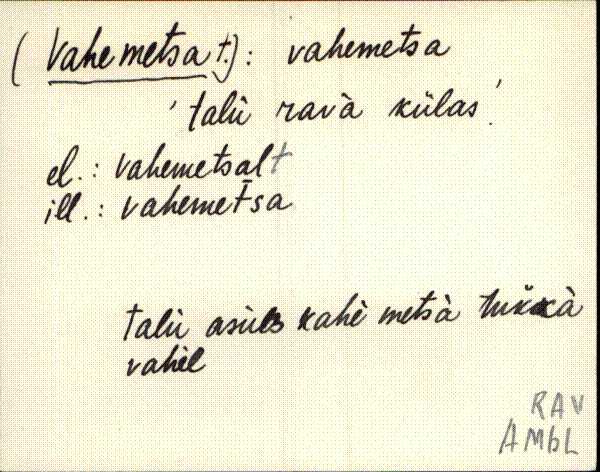 (Vahemetsa t.): vahemetsa
'talù ravà külas'.
el.: vahemetsalt
ill.: vahemet̄sa
talù asùs kahè metsà tukkà
vahèl
RAV
AMbL